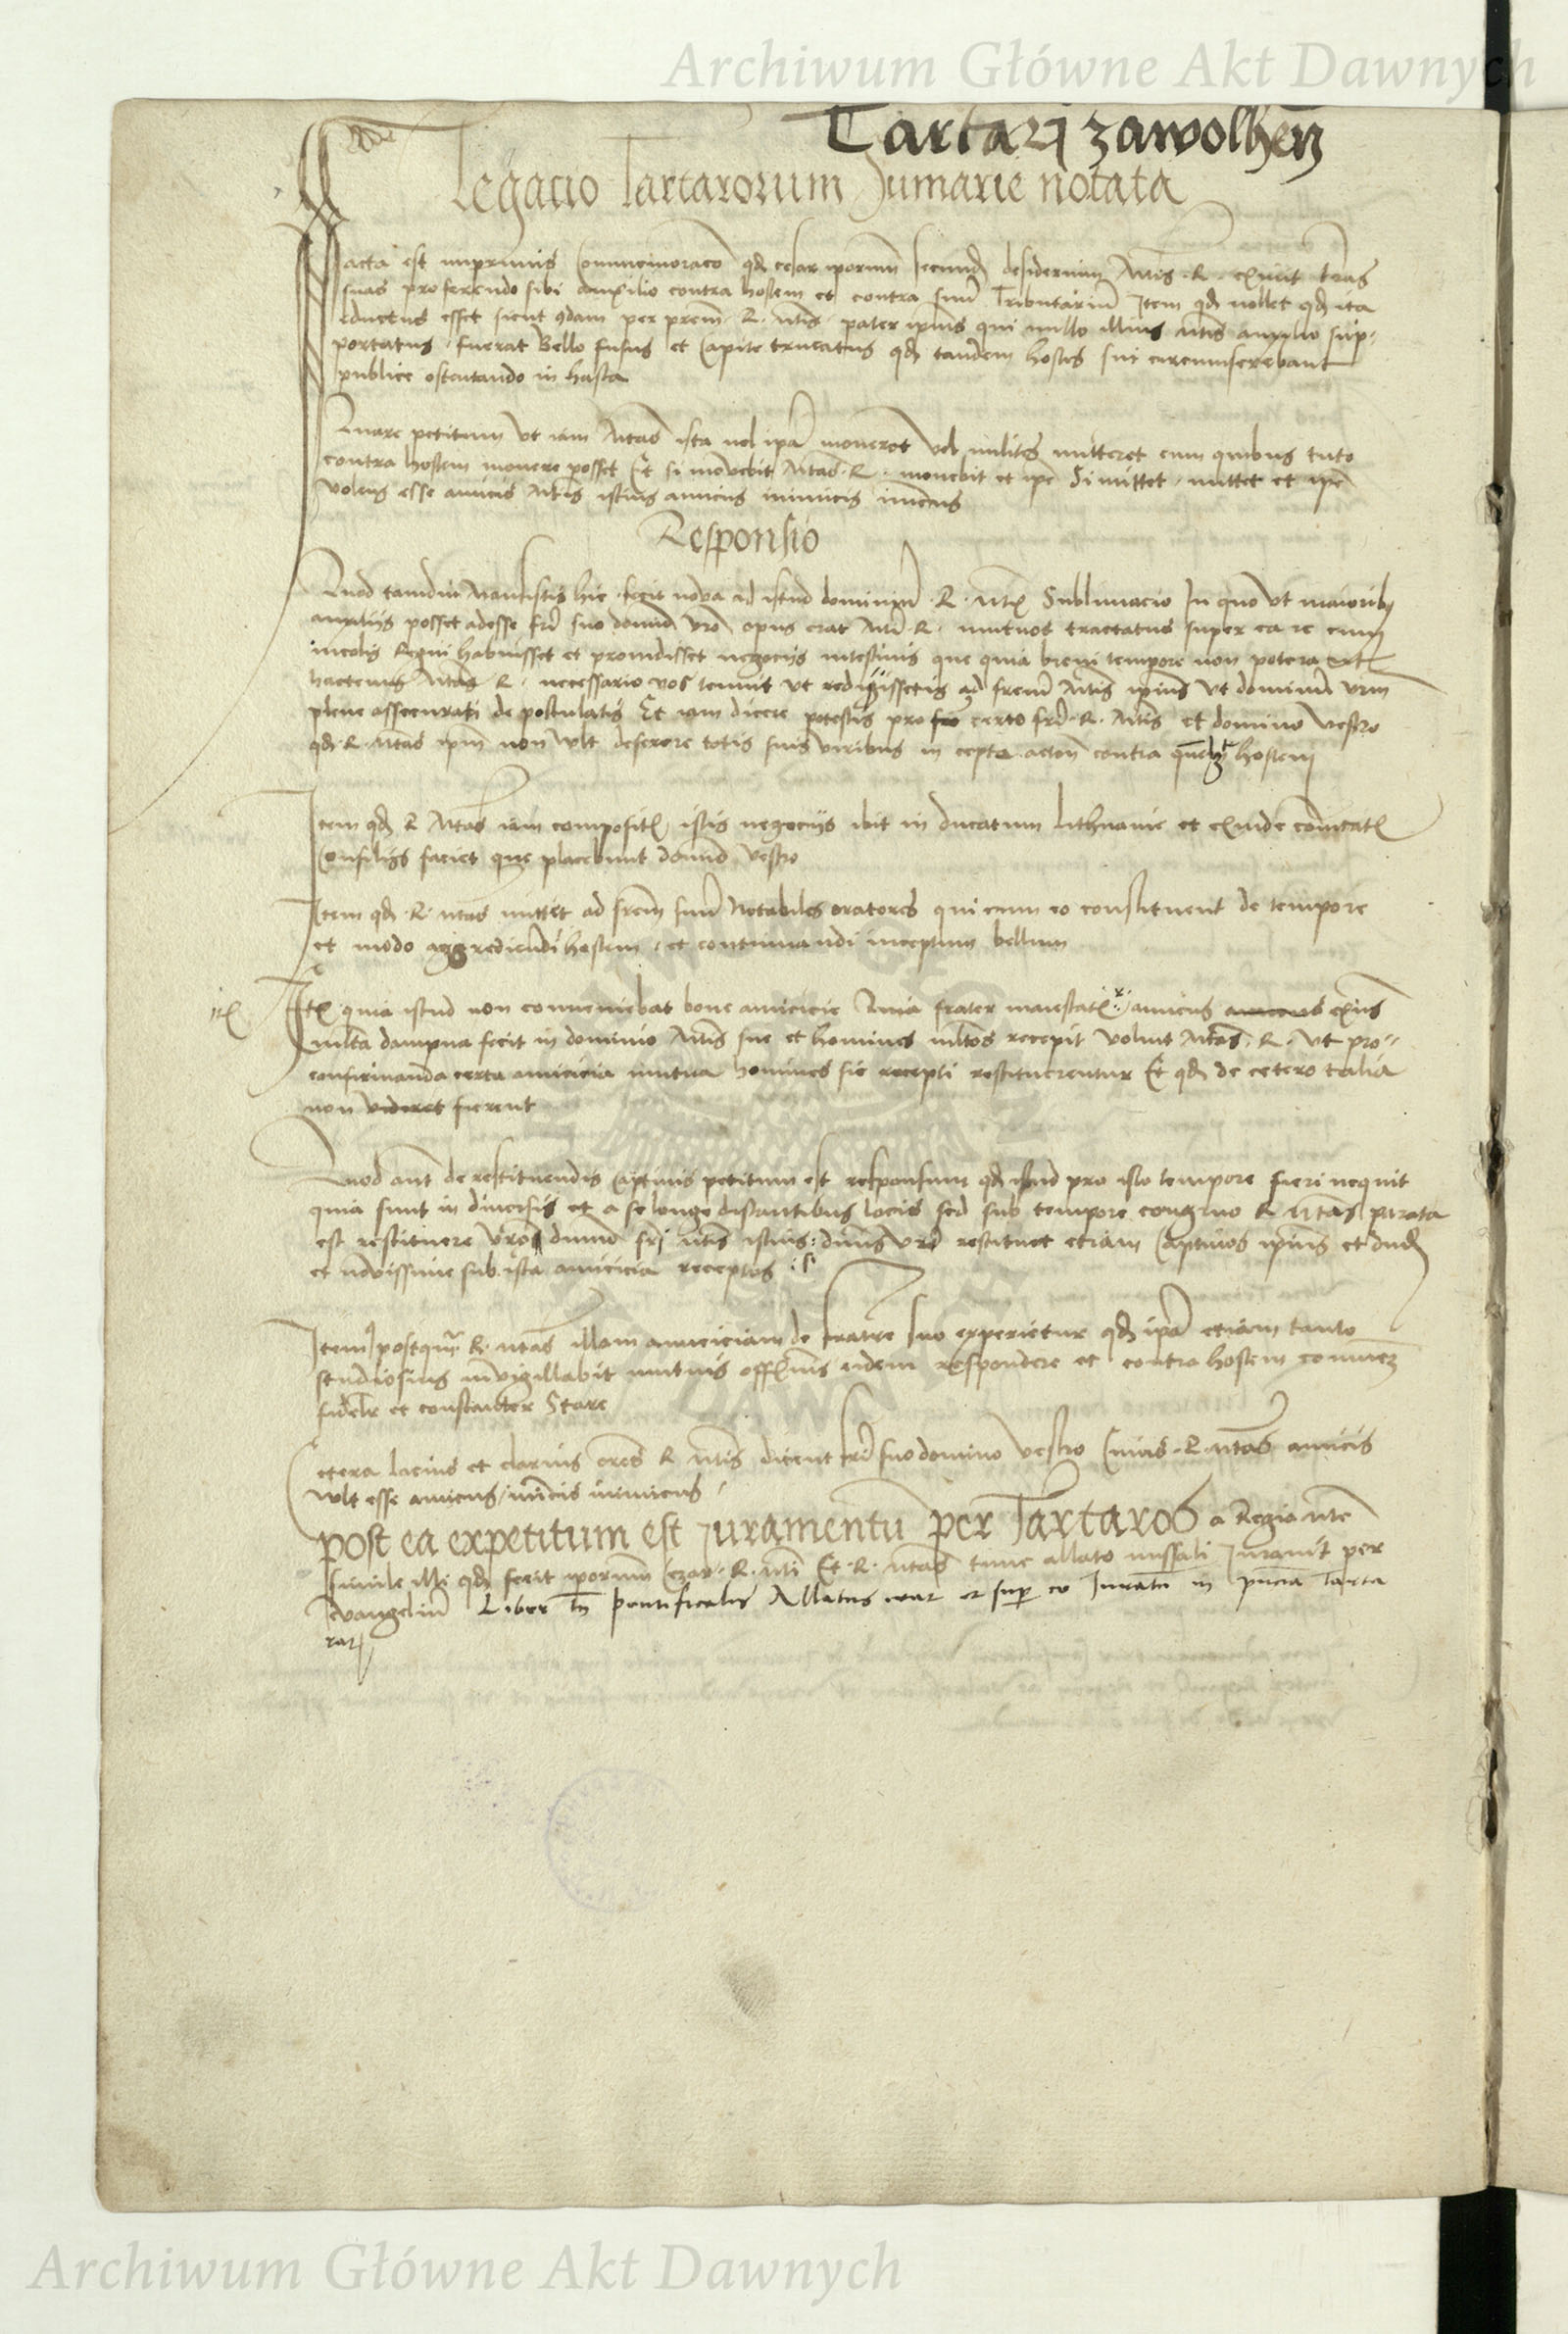 Archiwum Główne Akt Dawnych
Tartarj zawolhen̄
Legacio Tartarorum Sumarie notata
Facta est inprimis Commemoracō qd cesar iporum secund desiderium Mtis R. exivit terras
suas proferendo sibi auxilio contra hostem et contra suū Tributariū Item qd nollet qd ita
eductus esset sicut qdam per prem R. Mtis pater ipius qui nullo illius Mtis auxilio sup-
portatus fuerat Bello fusus et Capite truncatus qd tandem hostes sui circumferebant
publice ostentando in hasta
Quare petitum ut iam Mtas ista vel ipa moveret vel milites mitteret cum quibus tuto
contra hostem movere posset Et si movebit Mtas R. movebit et ipe Si mittet, mittet et ipe
volens esse amicis Mtis istius amicus inimicis inimcus
Responsio
Quod tamdiu Mansistis hic fecit nova ad istud dominiū R. Mtis Sublimacio In quo ut maiorib
auxiliis posset adesse fri suo domino vro opus erat Mti R. mutuos tractatus super ea re cum
incolis Regni habuisset et providisset negociis intestinis que quia brevi tempore non potera
hactenus Mtas R. necessario vos tenuit ut redijssetis ad frem Mtis ipius ut dominum vrm
plene assecurati de postulatis Et iam dicere potestis pro certo fri R. Mtis et domino vestro
qd R. Mtas ipm non vult deserere totis suis viribus in cepta contra quelz hostem
Item qd R Mtas iam compositis istis negociis ibit in ducatum Lithuanie et exinde
Consiliis faciet que placebunt domino vestro
Item qd R. Mtas mittet ad frem suū Notabiles oratores qui cum eo constituent de tempore
et modo aggrediendi hostem, et continuandi inceptum bellum
Itē quia istud non conveniebat bone amicicie Quia frater maiestatis amicus eius
multa dampna fecit in dominio Mtis sue et homines multos recepit voluit Mtas R. ut pro
confirmanda certa amicicia mutua homines sic recepti restituerentur Et qd de cetero talia
non fierent
Quod aut de restituendis Captivis petitum est responsum qd istud pro isto tempore fieri nequit
quia sunt in diversis et a se longe distantibus locis sed sub tempore congruo R Mtas parata
est restituere vros dummō fri Mtis istius dnus vr restituet etiam Captivos ipius et dud
et novissime sub ista amicicia receptos
Item postqm R. Mtas illam amiciciam de fratre suo experietur qd ipa etiam tanto
studiosius invigillabit mutuis officiis eidem respondere et contra hostem
fidelr et constanter Stare
Cetera lacius et clarius R Mtis dicent fri suo domino vestro Cuius R. Mtas amicis
vult esse amicus, inimicis inimicus
post ea expetitum est Juramentū per Tartaros a Regia Mte
simile illi qd fecit iporum Cezar R. Mti Et R. Mtas tunc allato missali Juravit per
Evangeliū Liber tn pontificalis Allatus erat et sup eo Juratū in pncia Tarta
rar
Archiwum Główne Akt Dawnych